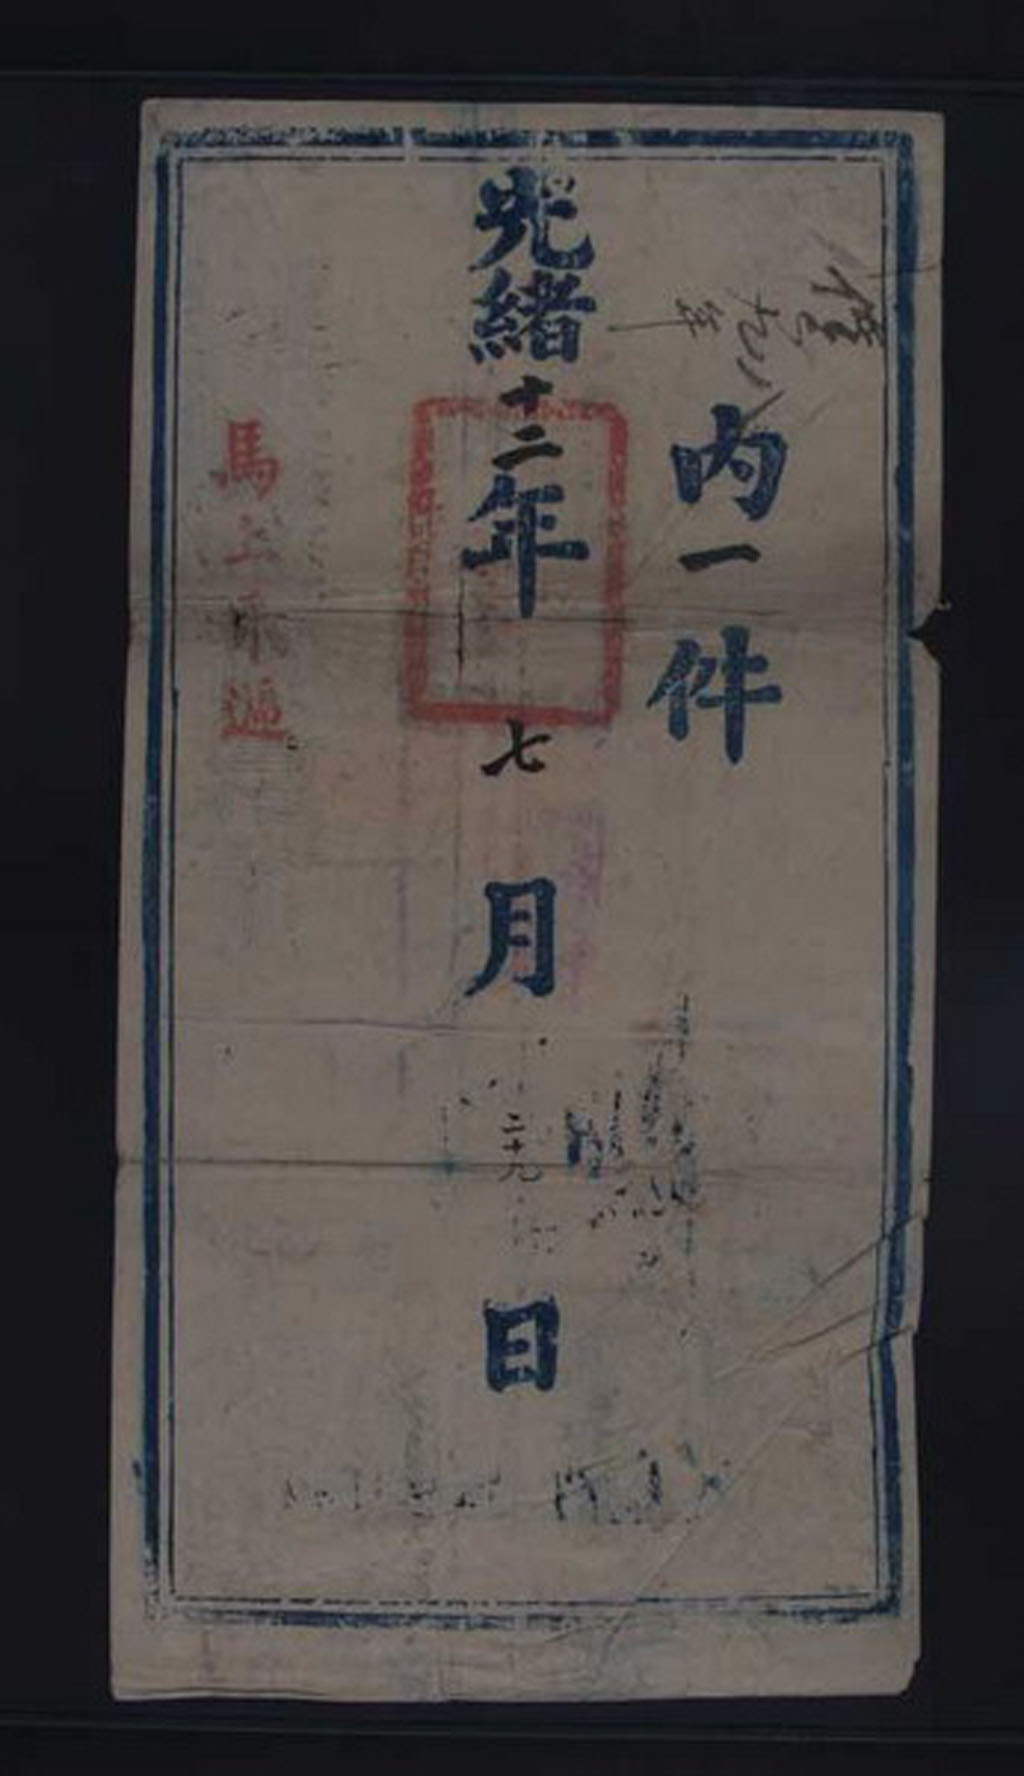 內一件
光緒十二年七月二十九日
馬上飛遞